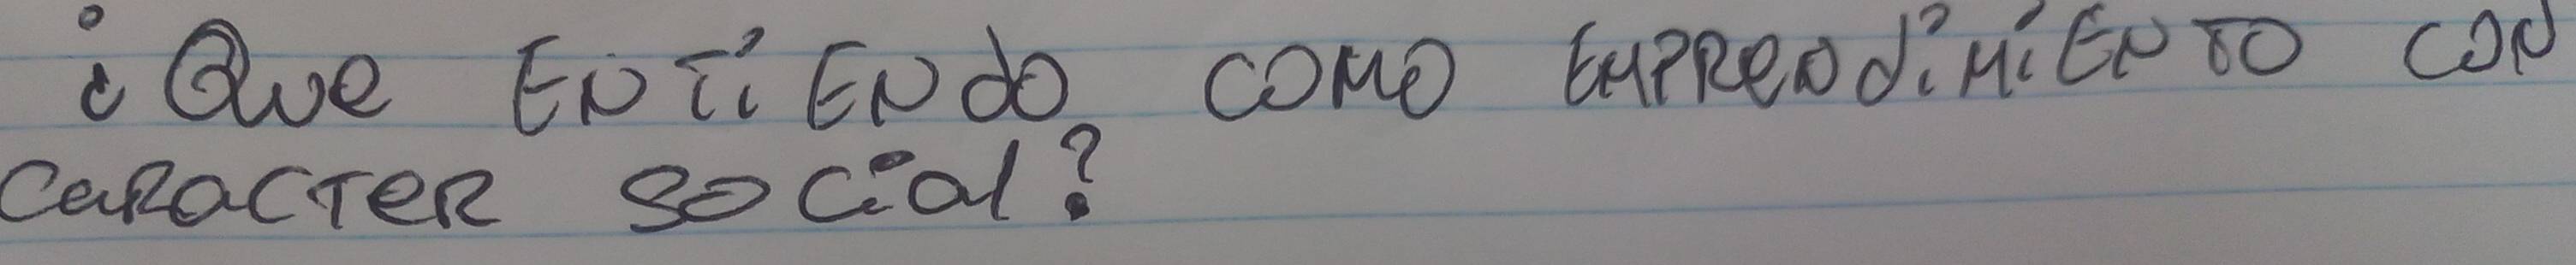 ¿Que ENTiENdo COMO EMPRENdiMiENTO CON
CARACTER social?